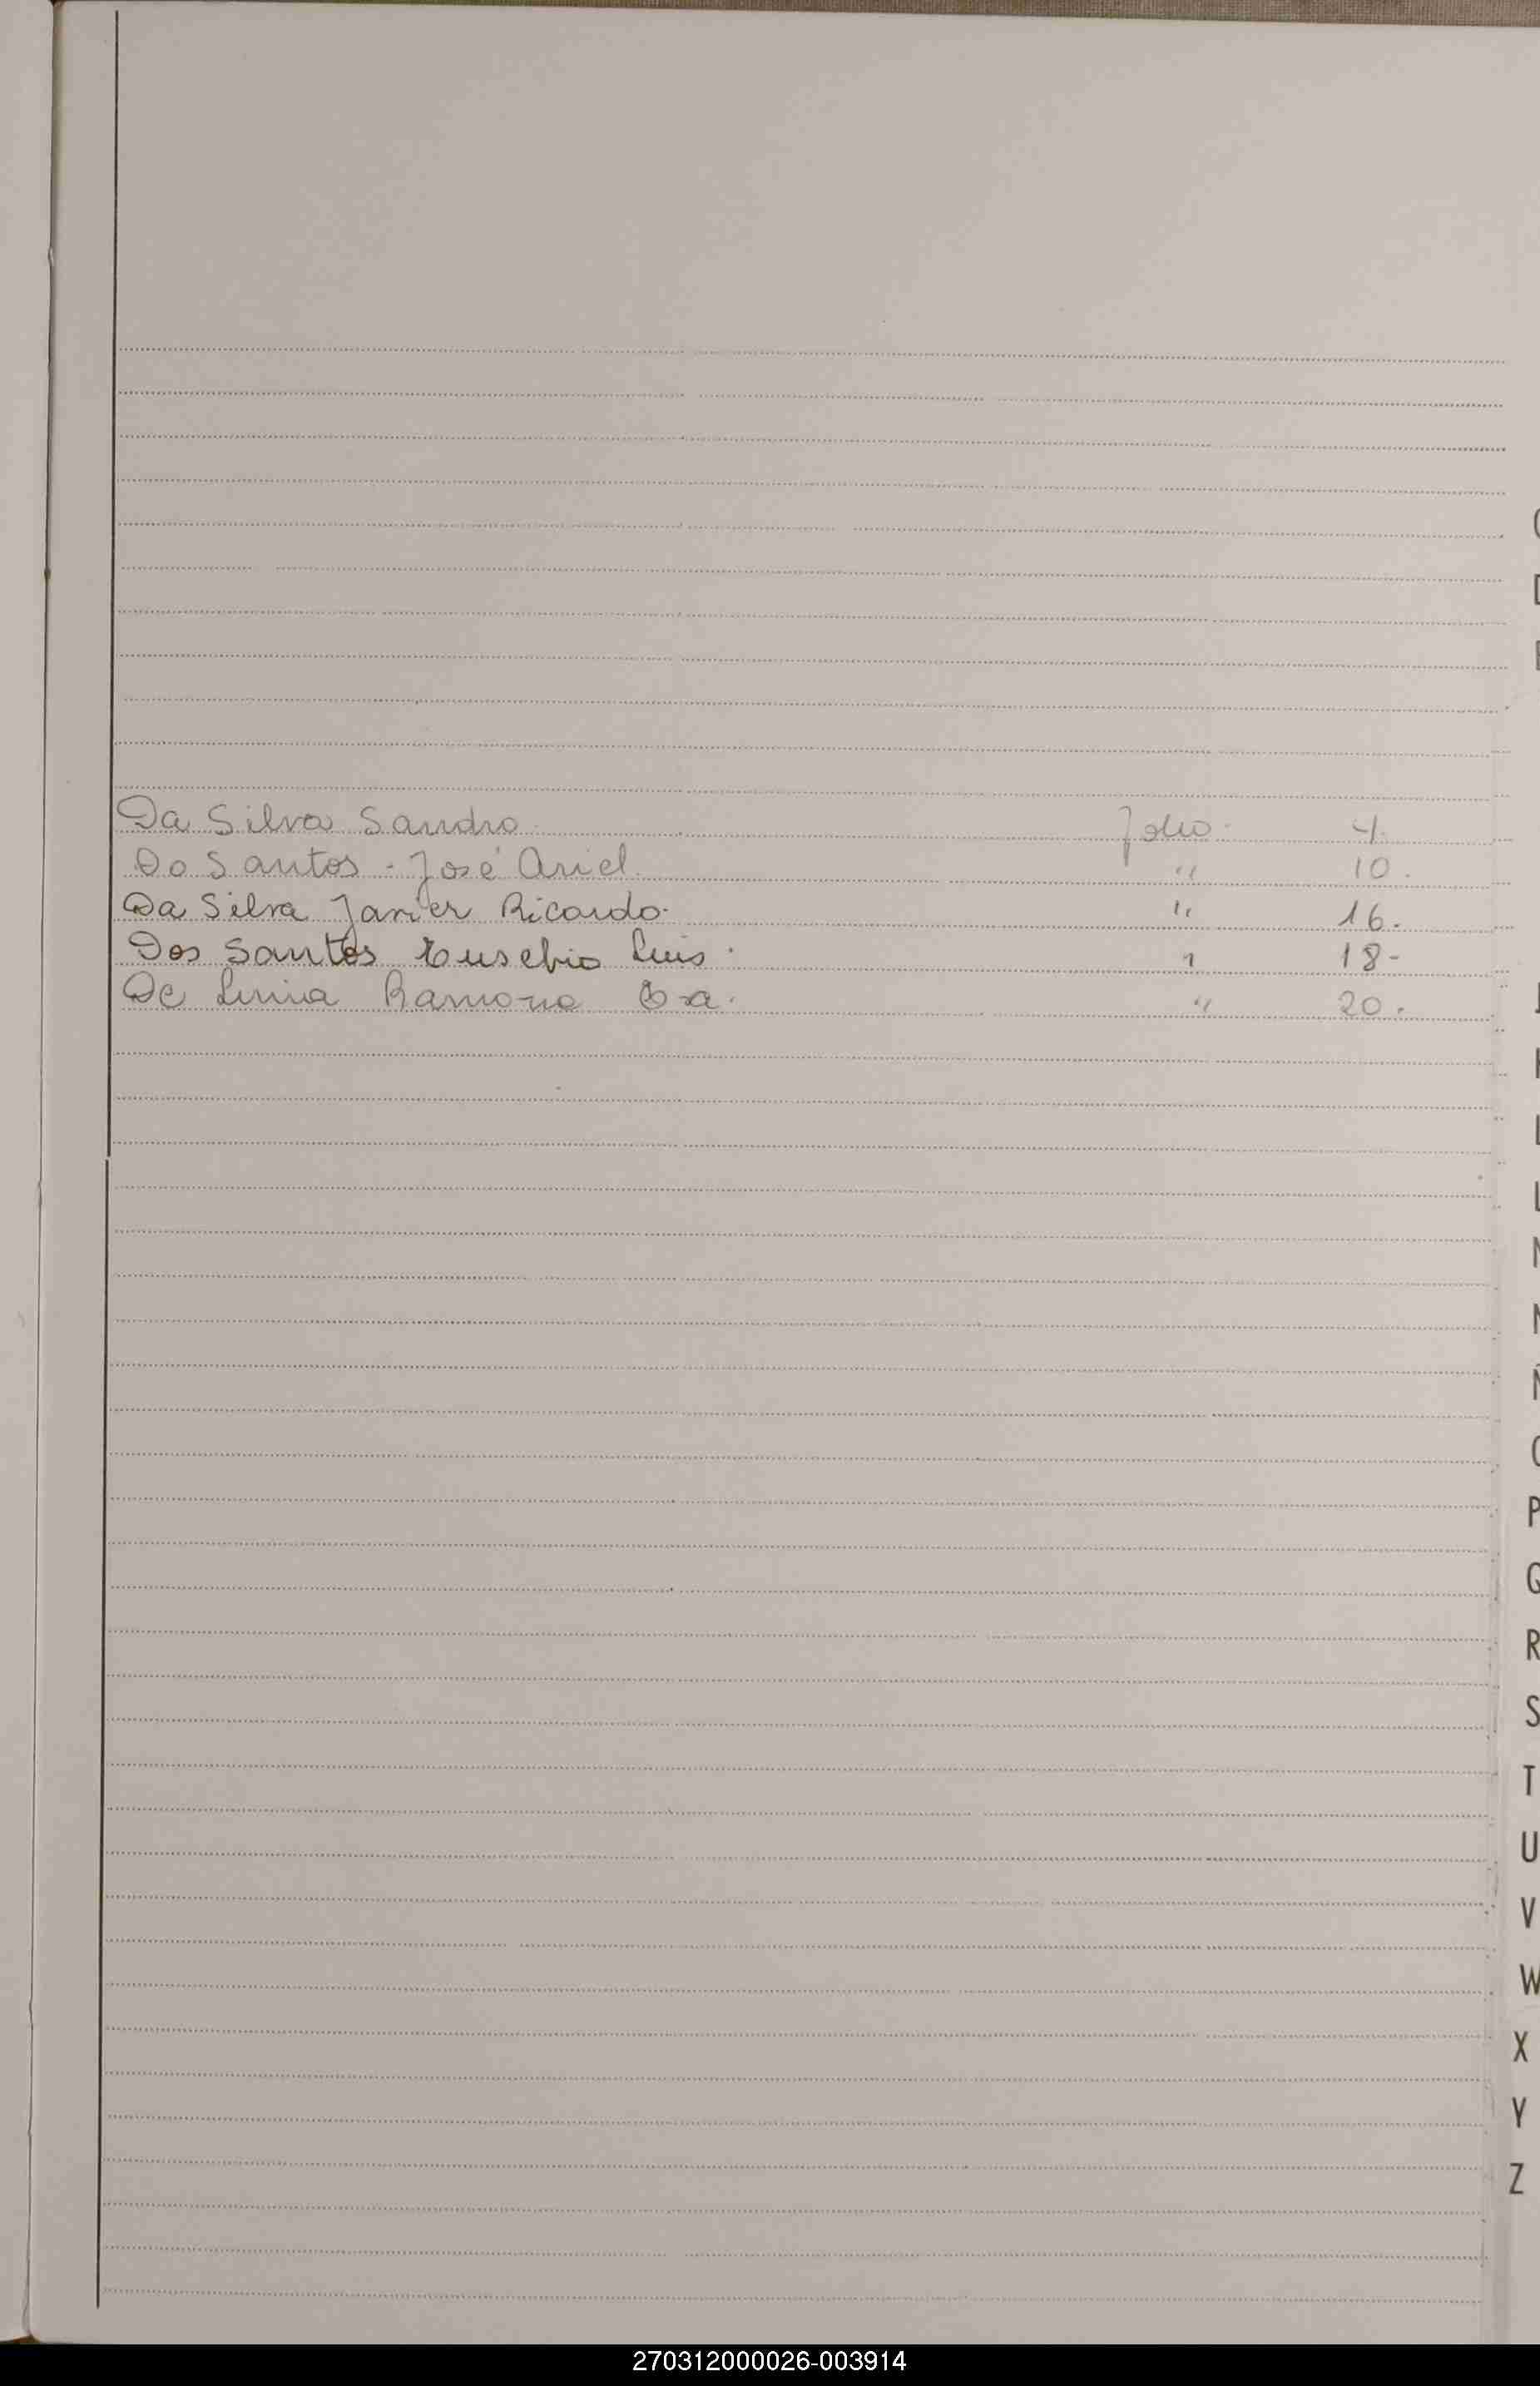 Da Silva Sandro. Folio. 4.
Do Santos - José Ariel. " 10.
Da Silva Javier Ricardo. " 16.
Dos Santos Eusebio Luis. " 18-
De Lima Ramona " 20.
J
K
L
P
Q
R
S
T
U
V
W
X
Y
Z
270312000026-003914